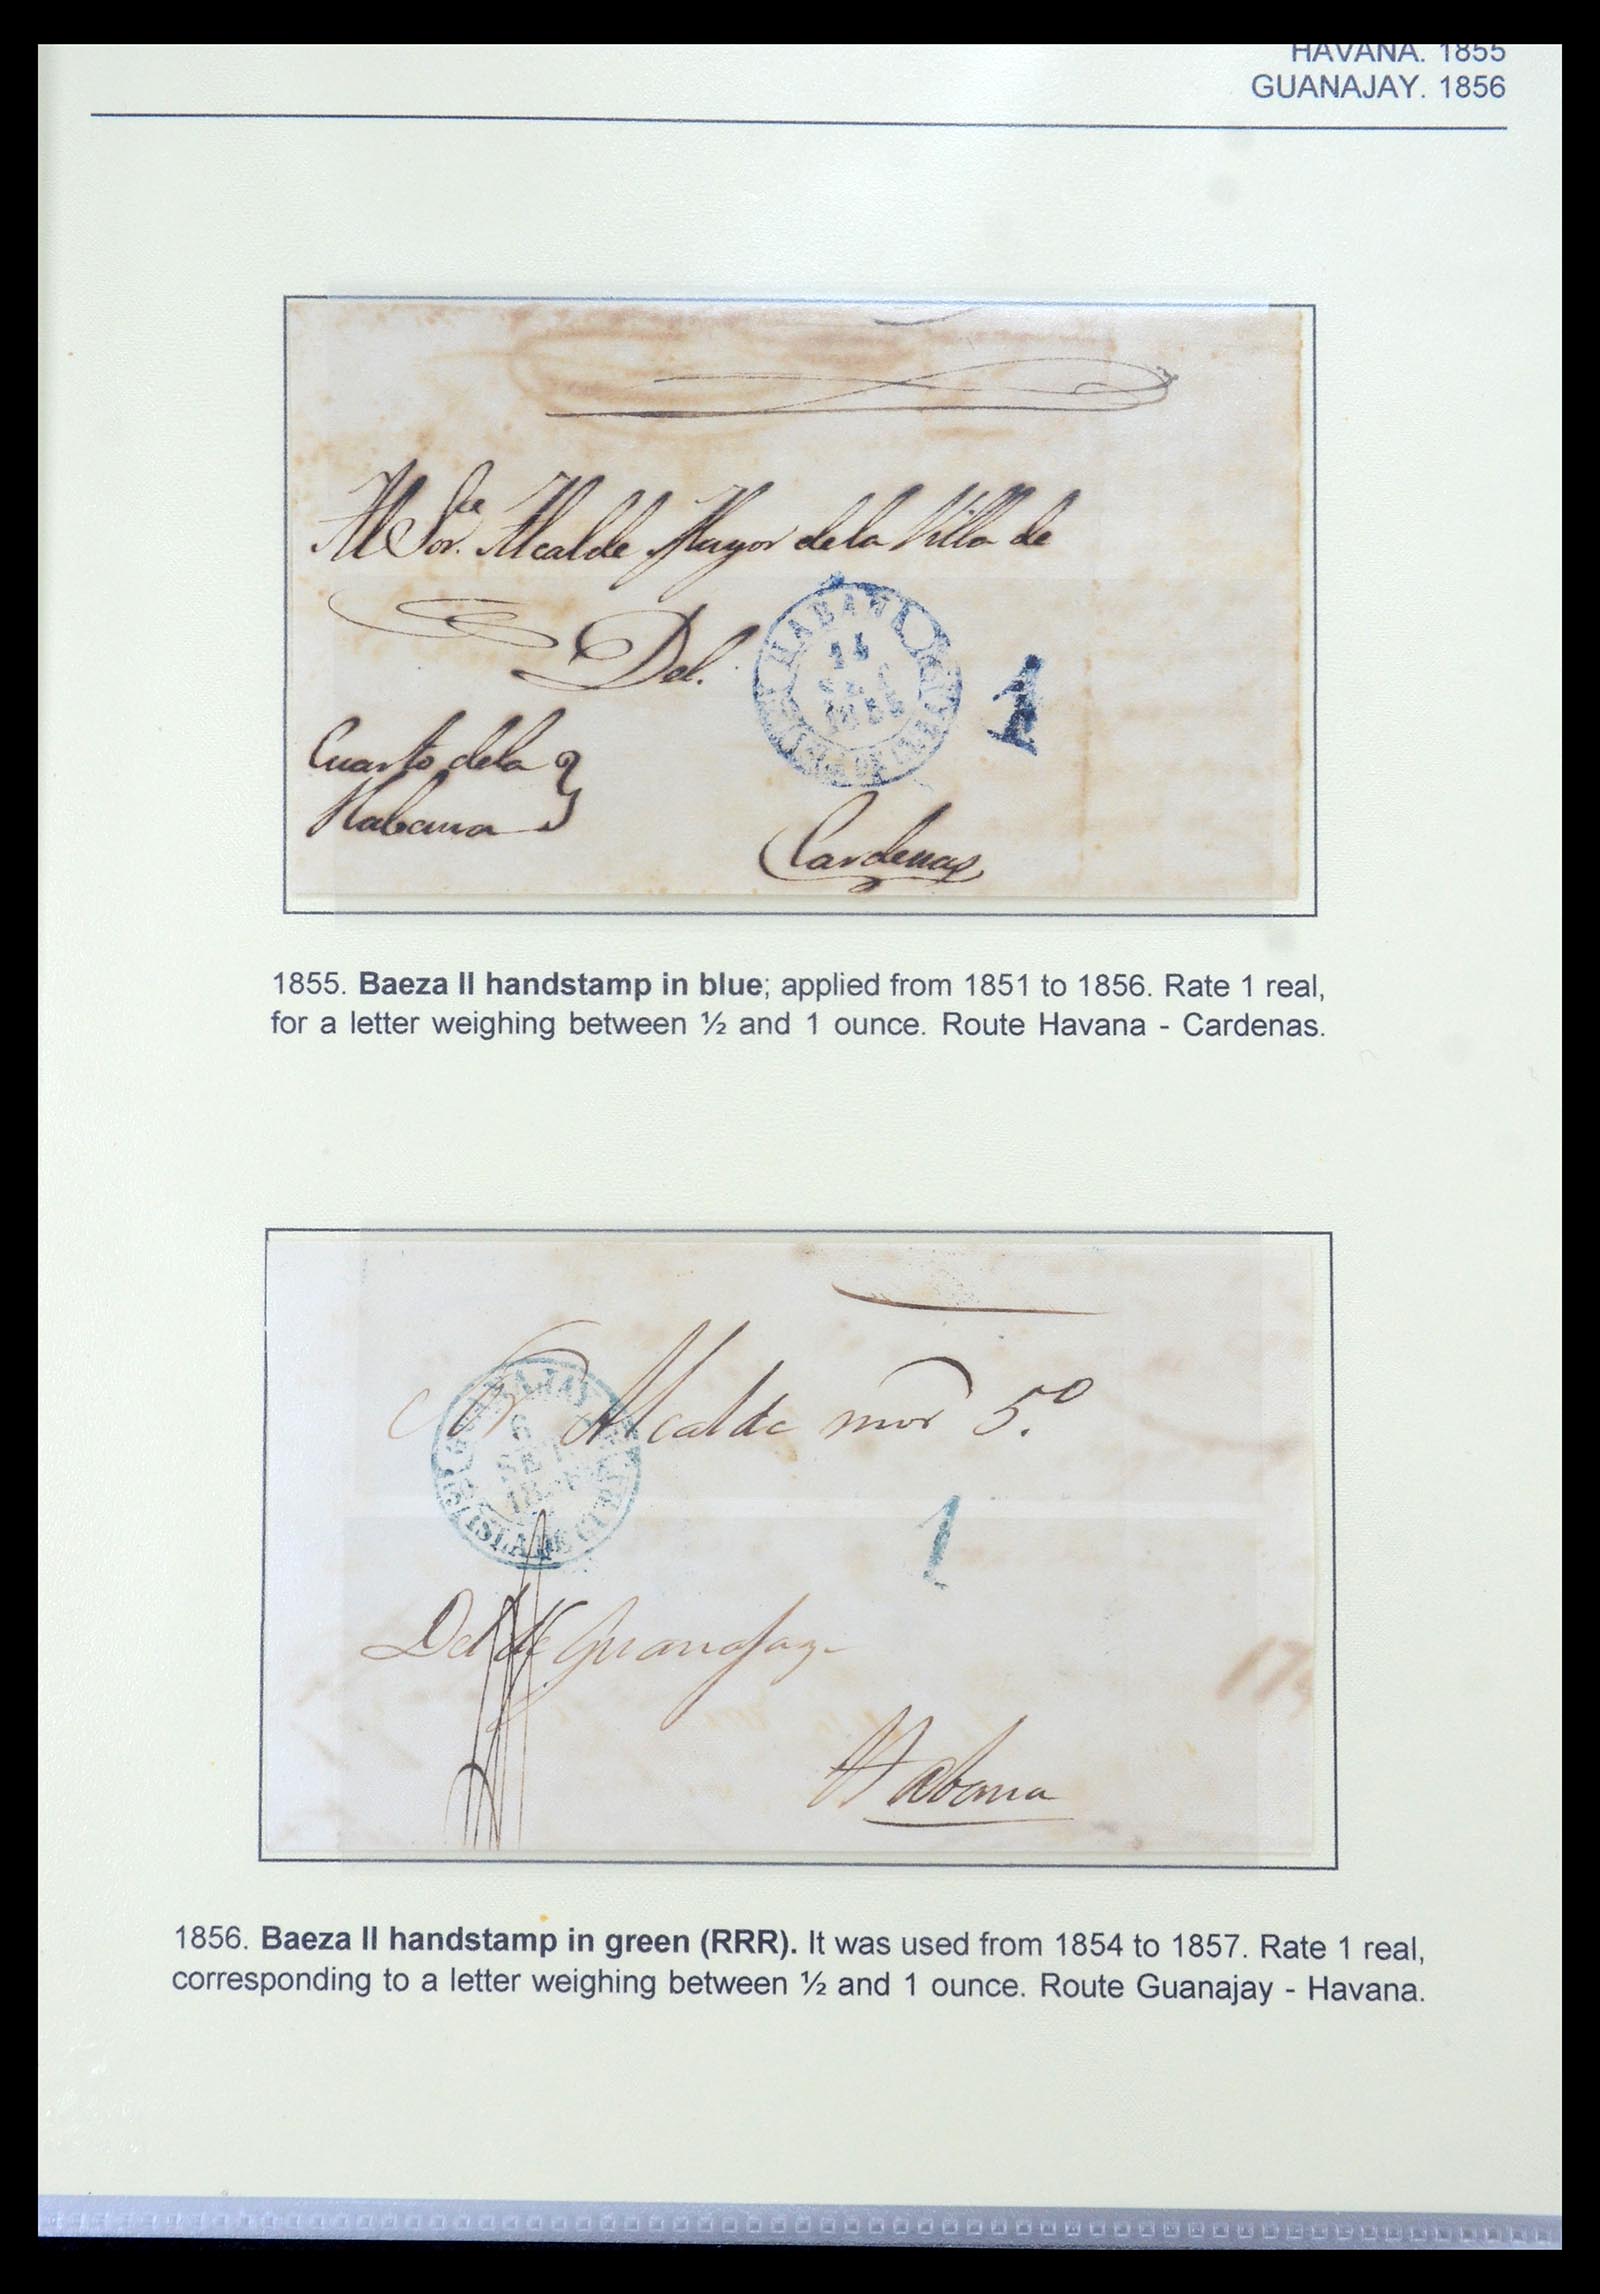 HAVANA. 1855
GUANAJAY. 1856
Al Sor. Alcalde Mayor de la Villa de
Del.
HABANA
14
1
Cuarto de la
Habana
Cardenas
1855. Baeza II handstamp in blue; applied from 1851 to 1856. Rate 1 real,
for a letter weighing between ½ and 1 ounce. Route Havana - Cardenas.
Sor Alcalde mor 5.º
6
SET
ISLA DE CUBA
1
Del de Guanajay
174
Habana
1856. Baeza II handstamp in green (RRR). It was used from 1854 to 1857. Rate 1 real,
corresponding to a letter weighing between ½ and 1 ounce. Route Guanajay - Havana.